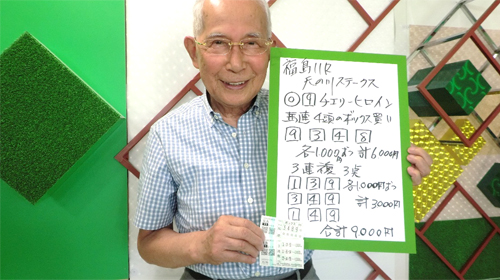 福島11R
天の川ステークス
◎ 9 チェリーヒロイン
馬連 4頭のボックス買い
9 3 4 8
各1,000ずつ 計6000円
3連複 3点
1 3 9 各1,000円ずつ
3 4 9 計3000円
1 4 9
合計9000円